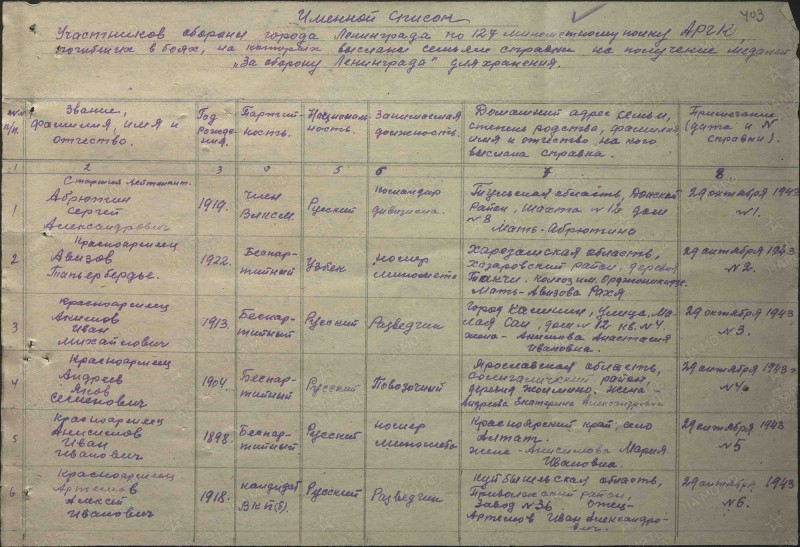 403
Именной список
Участников обороны города Ленинграда по 127 минометному полку АРГК,
погибших в боях, на которых высланы семьям справки на получение медалей
„За оборону Ленинграда" для хранения.
№№ п/п.
Звание, фамилия, имя и отчество.
Год рождения.
Партийность.
Национальность.
Занимаемая должность.
Домашний адрес семьи, степень родства, фамилия имя и отчество на кого выслана справка.
Примечание (дата и № справки).
1 2 3 4 5 6 7 8
1
Старший лейтенант.
Абрютин
Сергей
Александрович
1919.
Член
ВЛКСМ.
Русский
Командир
дивизиона.
Тульская область, Донской
район, шахта №16 дом
№8
Мать-Абрютина
29 октября 1943
№1.
2
Красноармеец
Авизов
Таньербердье.
1922.
Беспар-
тийный
Узбек
номер
миномета
область,
район, деревня
колхоз им. Орджоникидзе.
Мать-Авизова Рахя
29 октября 1943
№2.
3
Красноармеец
Анисимов
Иван
Михайлович
1913.
Беспар-
тийный
Русский
Разведчик
Город Калинин, улица Ма-
лая Сан, дом №12 кв. №4.
жена- Анастасия
Ивановна.
29 октября 1943
№3.
4
Красноармеец
Андреев
Яков
Семенович
1904.
Беспар-
тийный
Русский
Повозочный
Ярославская область,
Солигаличский район,
деревня жена-
Андреева Екатерина Александровна
29 октября 1943 г
№4.
5
Красноармеец
Анисимов
Иван
Иванович
1898.
Беспар-
тийный
Русский
номер
миномета
Красноярский край, село
Алтат.
жена-Анисимова Мария
Ивановна.
29 октября 1943
№5
6
Красноармеец
Артемов
Алексей
Иванович
1918.
кандидат
ВКП(б).
Русский
Разведчик
Куйбышевская область,
район,
Завод №36. отец-
Артемов Иван Александро-
вич.
29 октября 1943
№6.